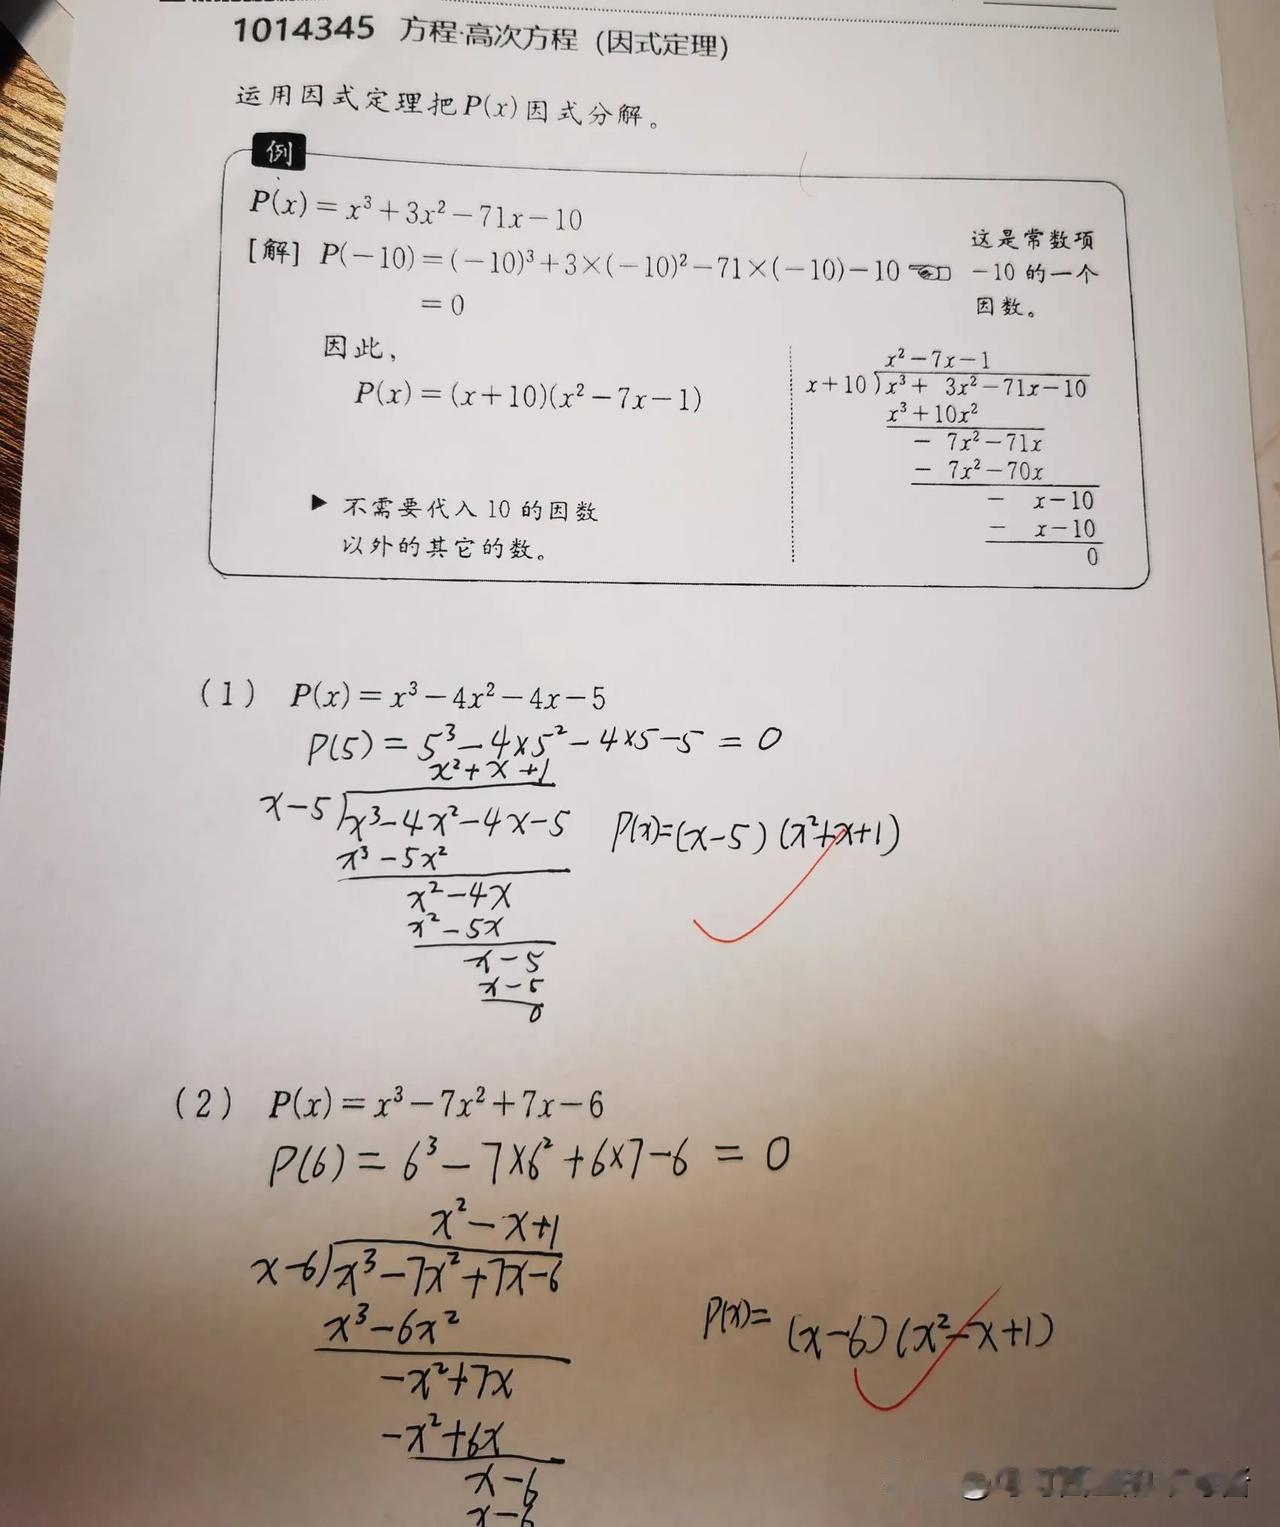 1014345 方程·高次方程（因式定理）
运用因式定理把P(x)因式分解。
例
P(x)=x³+3x²−71x−10
[解] P(−10)=(−10)³+3×(−10)²−71×(−10)−10
=0
这是常数项
−10 的一个
因数。
因此，
P(x)=(x+10)(x²−7x−1)
▶ 不需要代入 10 的因数
以外的其它的数。
x²−7x−1
x+10)x³+ 3x²−71x−10
x³+10x²
− 7x²−71x
− 7x²−70x
− x−10
− x−10
0
(1) P(x)=x³−4x²−4x−5
P(5)=5³−4×5²−4×5−5=0
x²+x+1
x−5)x³−4x²−4x−5
x³−5x²
x²−4x
x²−5x
x−5
x−5
0
P(x)=(x−5)(x²+x+1)
(2) P(x)=x³−7x²+7x−6
P(6)=6³−7×6²+6×7−6=0
x²−x+1
x−6)x³−7x²+7x−6
x³−6x²
−x²+7x
−x²+6x
x−6
x−6
P(x)=(x−6)(x²−x+1)